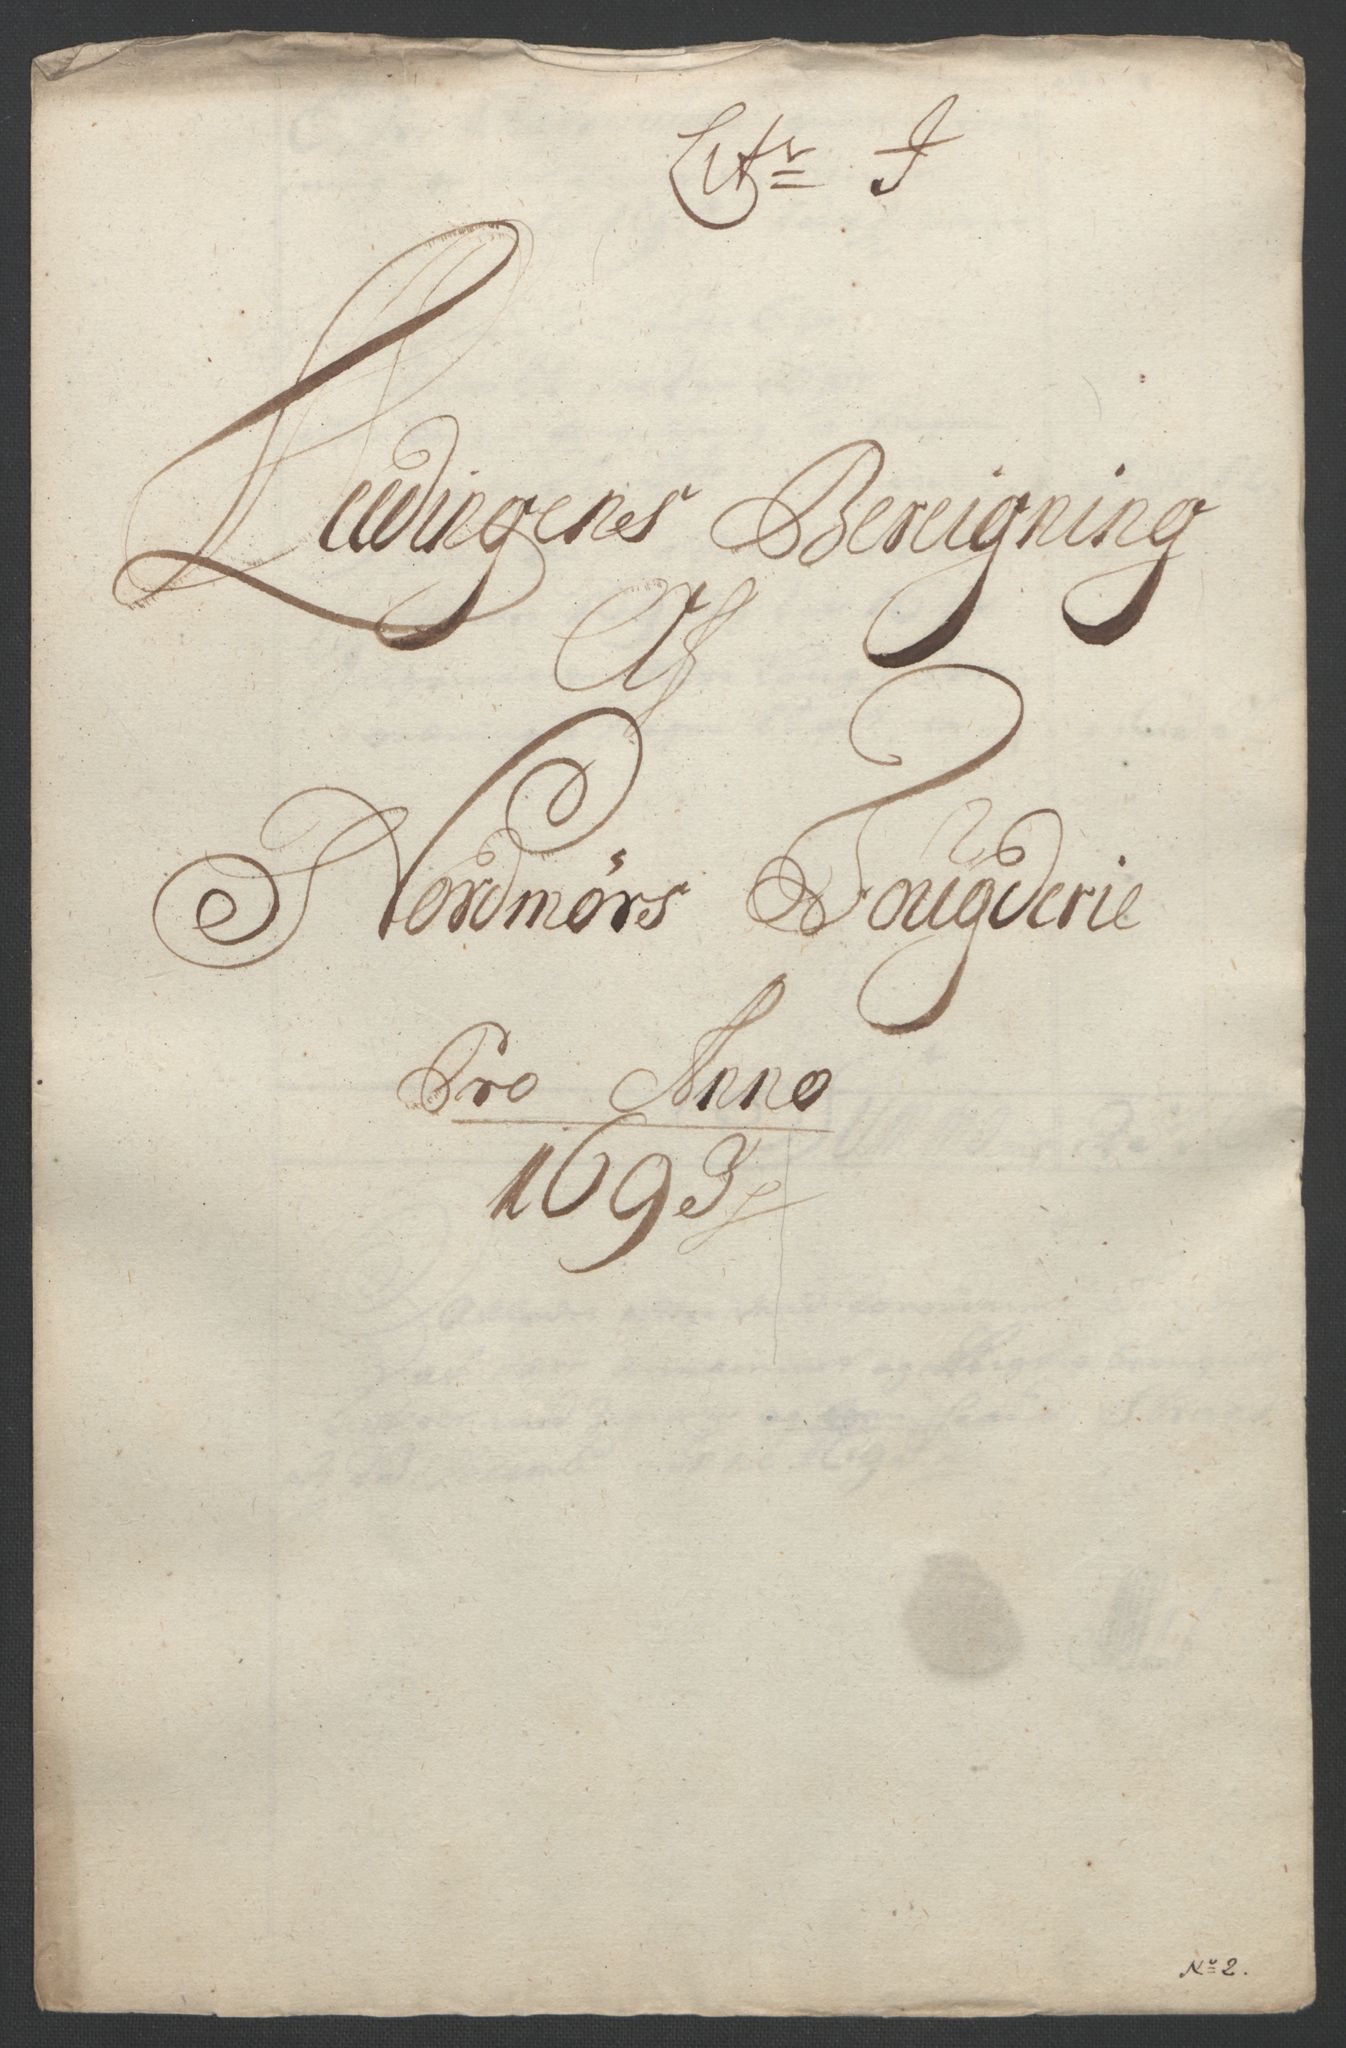 Litr J
Leedingens Bereigning
Af
Nordmørs Fougderie
Pro Anno
1693
No 2.